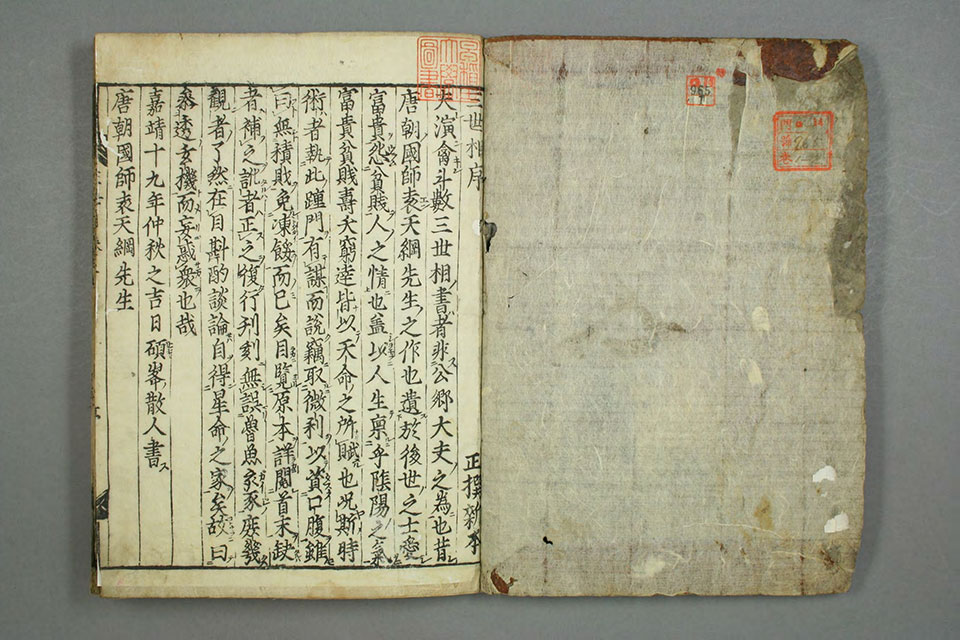 三世相序
正撰雜本
大演禽斗數三世相書者非公鄉大夫之為也昔
唐朝國師袁天綱先生之作也遺於後世之士愛
富貴恐貧賎人之情也蓋以人生禀乎陰陽之氣
富貴貧賎壽夭窮達皆以天命之所賦也況斯時
術者執此踵門有謀而說竊取微利以資口腹雖
曰無積賎免凍餒而已矣目覧原本詳閱首末缺
者補之訛者正之復行刋刻無誤魯魚家豕疾幾
觀者了然在目斟酌談論自得星命之家矣故曰
叅透玄機而妄惑衆也哉
嘉靖十九年仲秋之吉日碩峯散人書
唐朝國師袁天綱先生